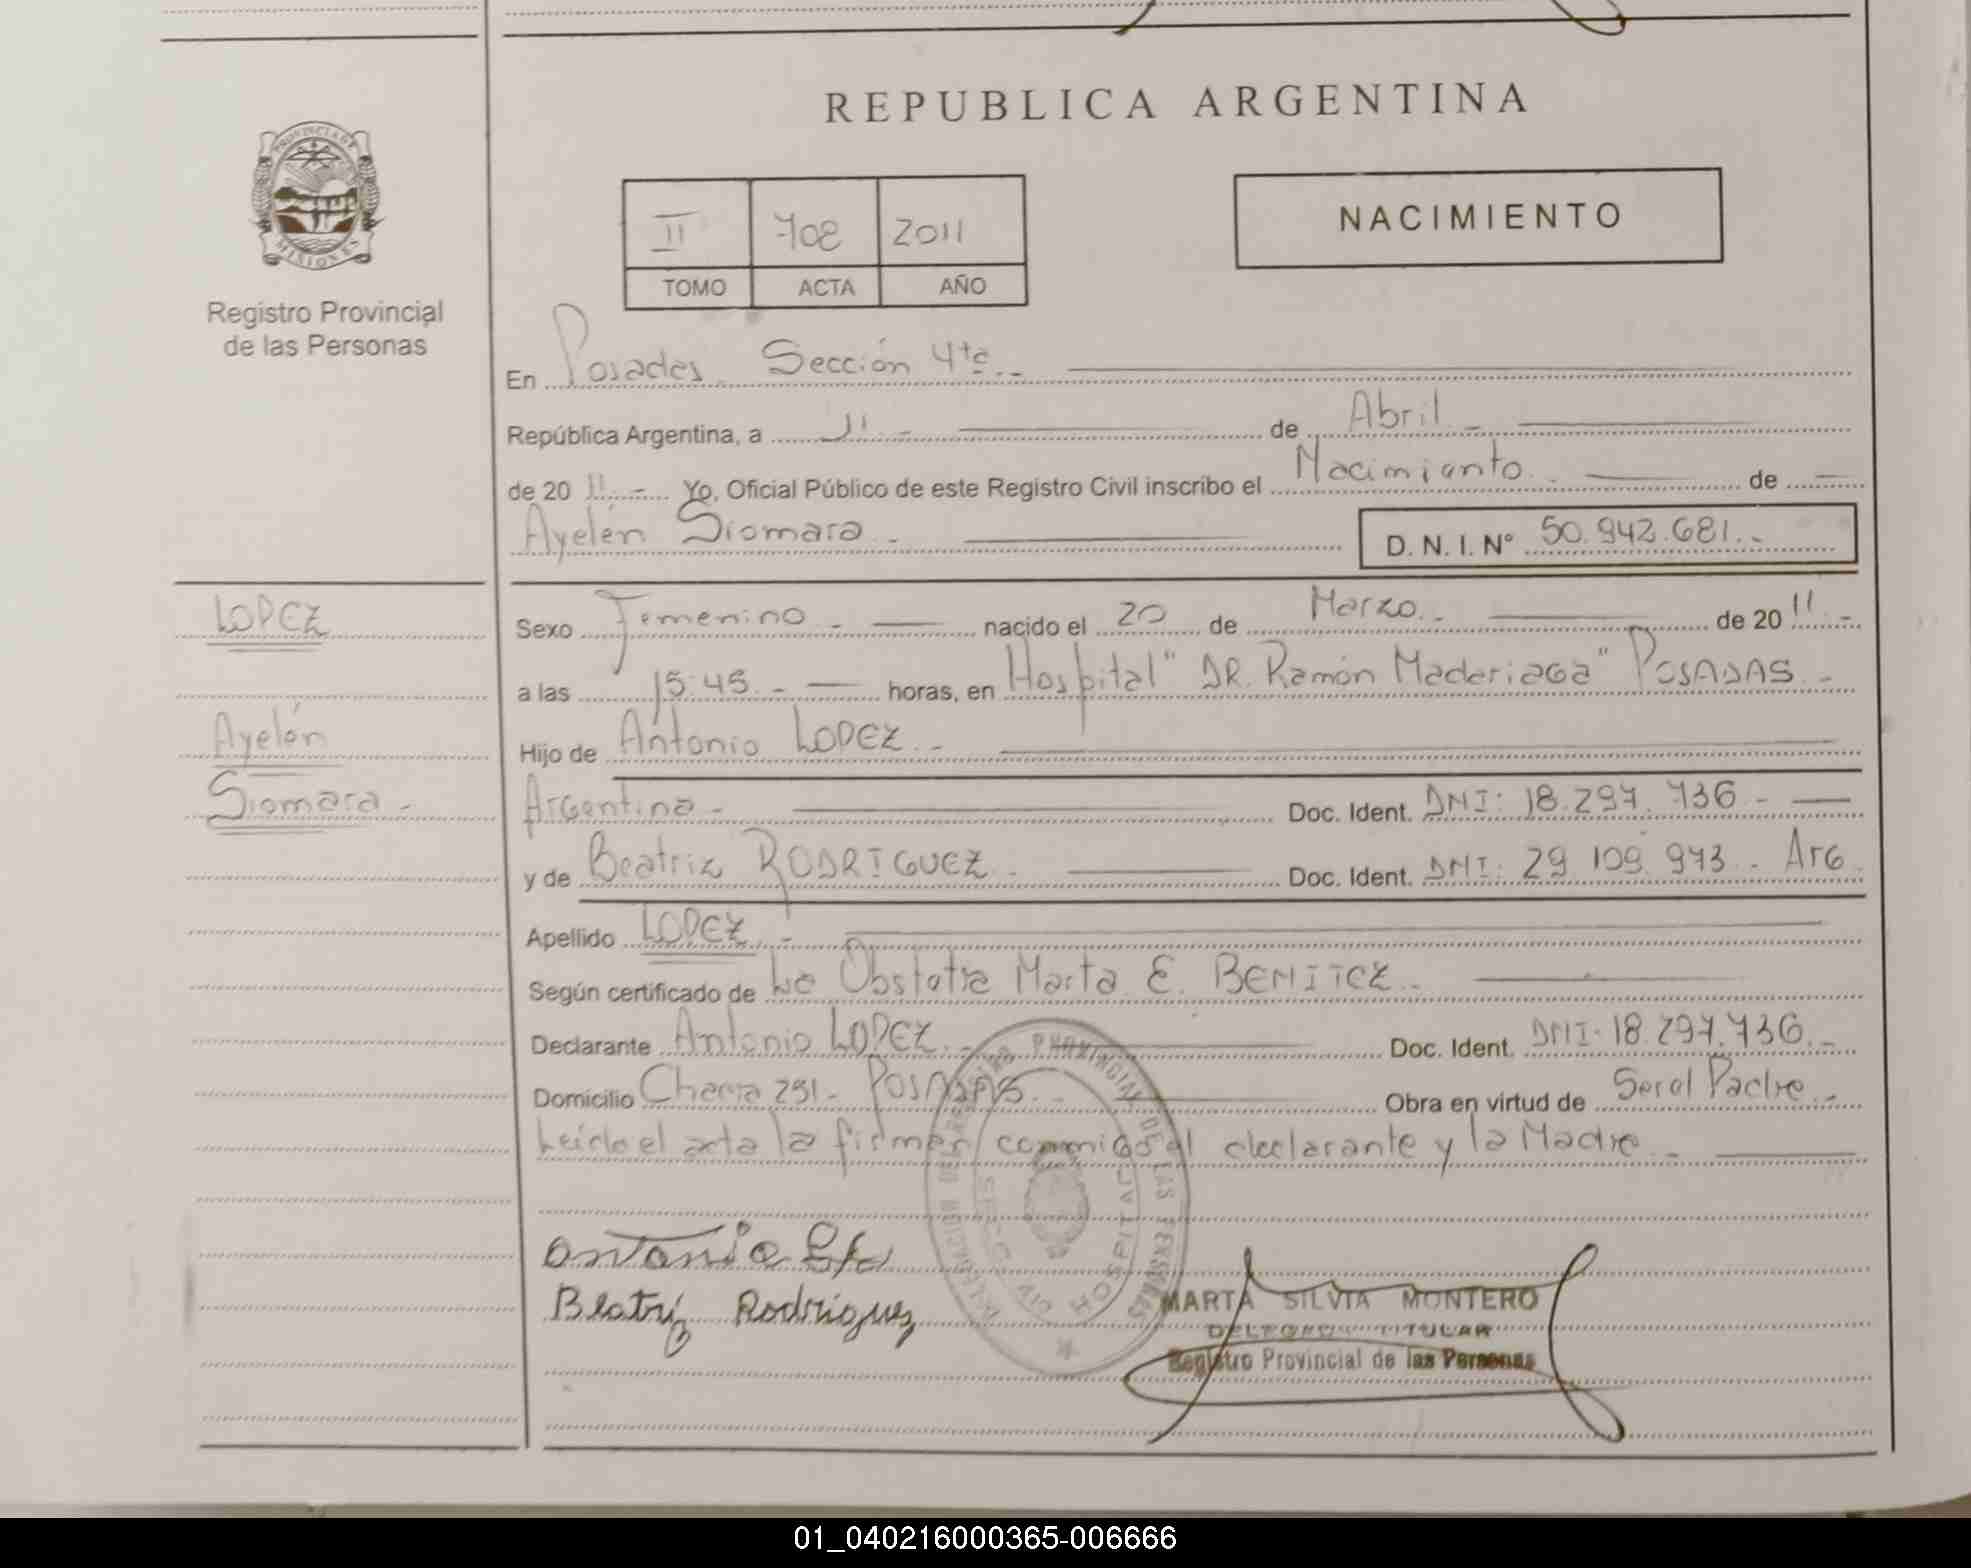 REPUBLICA ARGENTINA
PROVINCIA DE MISIONES
Registro Provincial
de las Personas
II 708 2011
TOMO ACTA AÑO
NACIMIENTO
En Posadas Sección 4ta
República Argentina, a 11 de Abril
de 20 11 Yo, Oficial Público de este Registro Civil inscribo el Nacimiento de
Ayelén Siomara D. N. I. Nº 50.942.681
LOPEZ
Ayelén
Siomara
Sexo Femenino nacido el 20 de Marzo de 20 11
a las 15:45 horas, en Hospital "DR. Ramón Madariaga" POSADAS
Hijo de Antonio LOPEZ
Argentina Doc. Ident. DNI: 18.297.736
y de Beatriz RODRIGUEZ Doc. Ident. DNI: 29 109 973 - Arg
Apellido LOPEZ
Según certificado de La Obstetra Marta E. BENITEZ
Declarante Antonio LOPEZ Doc. Ident. DNI. 18.297.736
Domicilio Chacra 251 - POSADAS Obra en virtud de Ser el Padre
Leido el acta la firman conmigo el declarante y la Madre
Antonio
Beatriz Rodriguez
DELEGACION DEL REGISTRO PROVINCIAL DE LAS PERSONAS
HOSPITAL
MARTA SILVIA MONTERO
DELEGADA TITULAR
Registro Provincial de las Personas
01_040216000365-006666